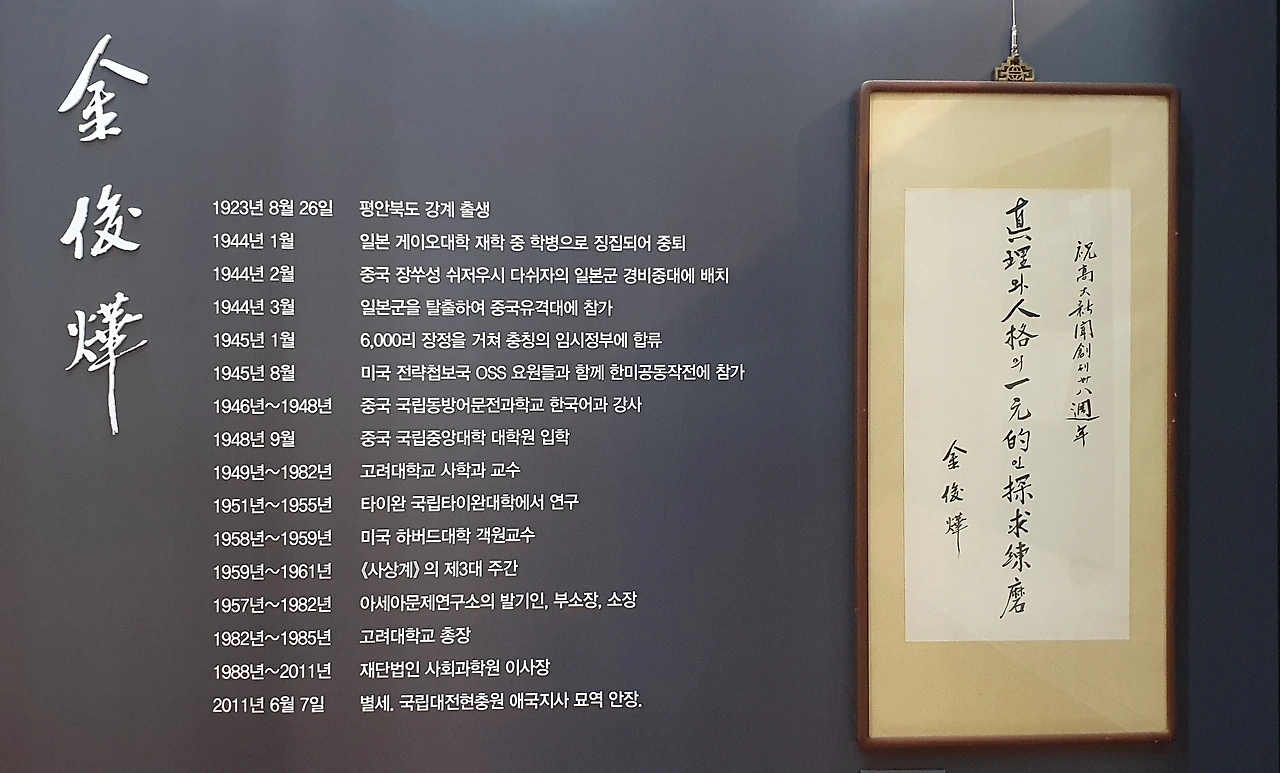 金俊燁
1923년 8월 26일 평안북도 강계 출생
1944년 1월 일본 게이오대학 재학 중 학병으로 징집되어 중퇴
1944년 2월 중국 장쑤성 쉬저우시 다쉬자의 일본군 경비중대에 배치
1944년 3월 일본군을 탈출하여 중국유격대에 참가
1945년 1월 6,000리 장정을 거쳐 충칭의 임시정부에 합류
1945년 8월 미국 전략첩보국 OSS 요원들과 함께 한미공동작전에 참가
1946년~1948년 중국 국립동방어문전과학교 한국어과 강사
1948년 9월 중국 국립중앙대학 대학원 입학
1949년~1982년 고려대학교 사학과 교수
1951년~1955년 타이완 국립타이완대학에서 연구
1958년~1959년 미국 하버드대학 객원교수
1959년~1961년 《사상계》의 제3대 주간
1957년~1982년 아세아문제연구소의 발기인, 부소장, 소장
1982년~1985년 고려대학교 총장
1988년~2011년 재단법인 사회과학원 이사장
2011년 6월 7일 별세. 국립대전현충원 애국지사 묘역 안장.
祝高大新聞創刊廿八週年
真理와人格의一元的인探求練磨
金俊燁